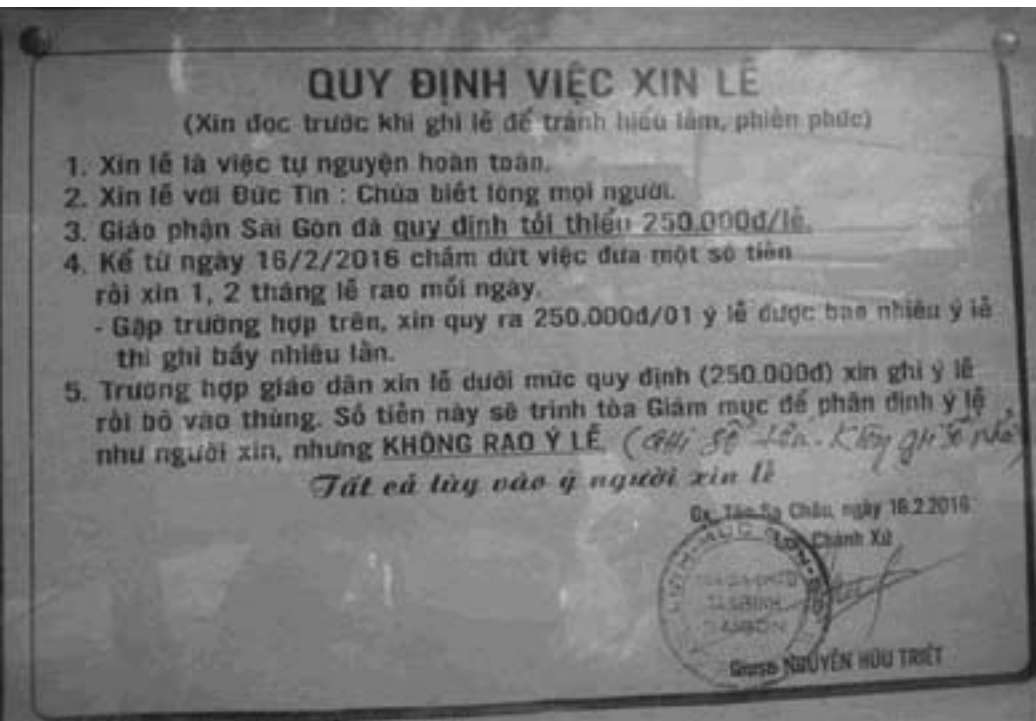 QUY ĐỊNH VIỆC XIN LỄ
(Xin đọc trước khi ghi lễ để tránh hiểu lầm, phiền phức)
1. Xin lễ là việc tự nguyện hoàn toàn.
2. Xin lễ với Đức Tin : Chúa biết lòng mọi người.
3. Giáo phận Sài Gòn đã quy định tối thiểu 250.000đ/lễ.
4. Kể từ ngày 16/2/2016 chấm dứt việc đưa một số tiền
rồi xin 1, 2 tháng lễ rao mỗi ngày.
- Gặp trường hợp trên, xin quy ra 250.000đ/01 ý lễ được bao nhiêu ý lễ
thì ghi bấy nhiêu lần.
5. Trương hợp giáo dân xin lễ dưới mức quy định (250.000đ) xin ghi ý lễ
rồi bỏ vào thùng. Số tiền này sẽ trình tòa Giám mục để phân định ý lễ
như người xin, nhưng KHÔNG RAO Ý LỄ. (Ghi số tên. Không ghi số nhà)
Tất cả tùy vào ý người xin lễ
Gx. Tân Sa Châu, ngày 16.2.2016
Chánh Xứ
NGUYỄN HỮU TRIẾT